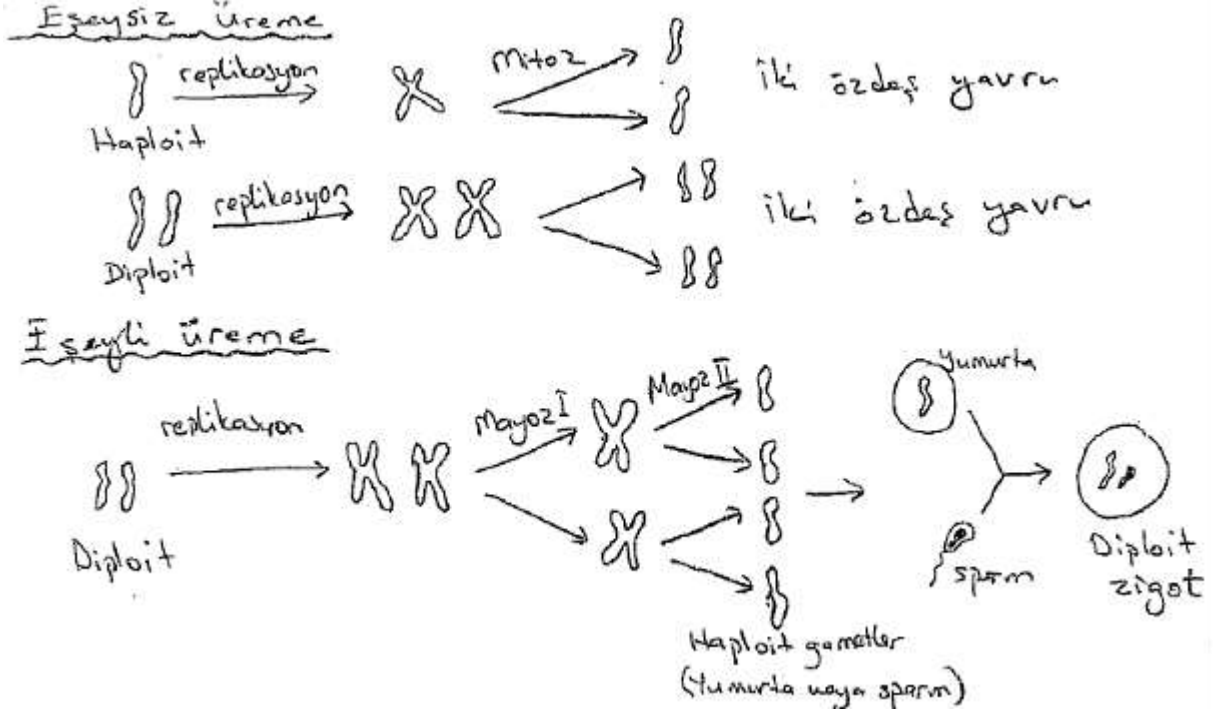 Eşeysiz üreme
replikasyon
Mitoz
Haploit
iki özdeş yavru
replikasyon
Diploit
iki özdeş yavru
Eşeyli üreme
replikasyon
Mayoz I
Mayoz II
Diploit
Haploit gametler
(Yumurta veya sperm)
Yumurta
sperm
Diploit
zigot